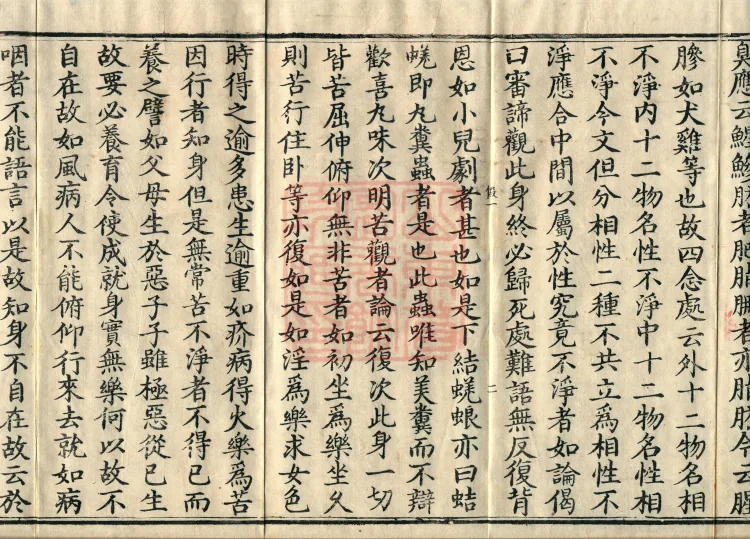 臭應云者者亦今云腥
膠如犬雞等也故四念處云外十二物名相
不淨内十二物名性不淨中十二物名性相
不淨今文但分相性二種不共立爲相性不
淨應合中間以屬於性究竟不淨者如論偈
曰審諦觀此身終必歸死處難語無反復背
恩如小兒劇者甚也如是下結蜣蜋亦曰蛣
二
蜣即丸糞蟲者是也此蟲唯知美糞而不辯
歡喜丸味次明苦觀者論云復次此身一切
皆苦屈伸俯仰無非苦者如初坐爲樂坐久
則苦行住卧等亦復如是如淫爲樂求女色
時得之逾多患生逾重如疥病得火樂爲苦
因行者知身但是無常苦不淨者不得已而
養之譬如父母生於惡子子雖極惡從已生
故要必養育令便成就身實無樂何以故不
自在故如風病人不能俯仰行來去就如病
咽者不能語言以是故知身不自在故云於